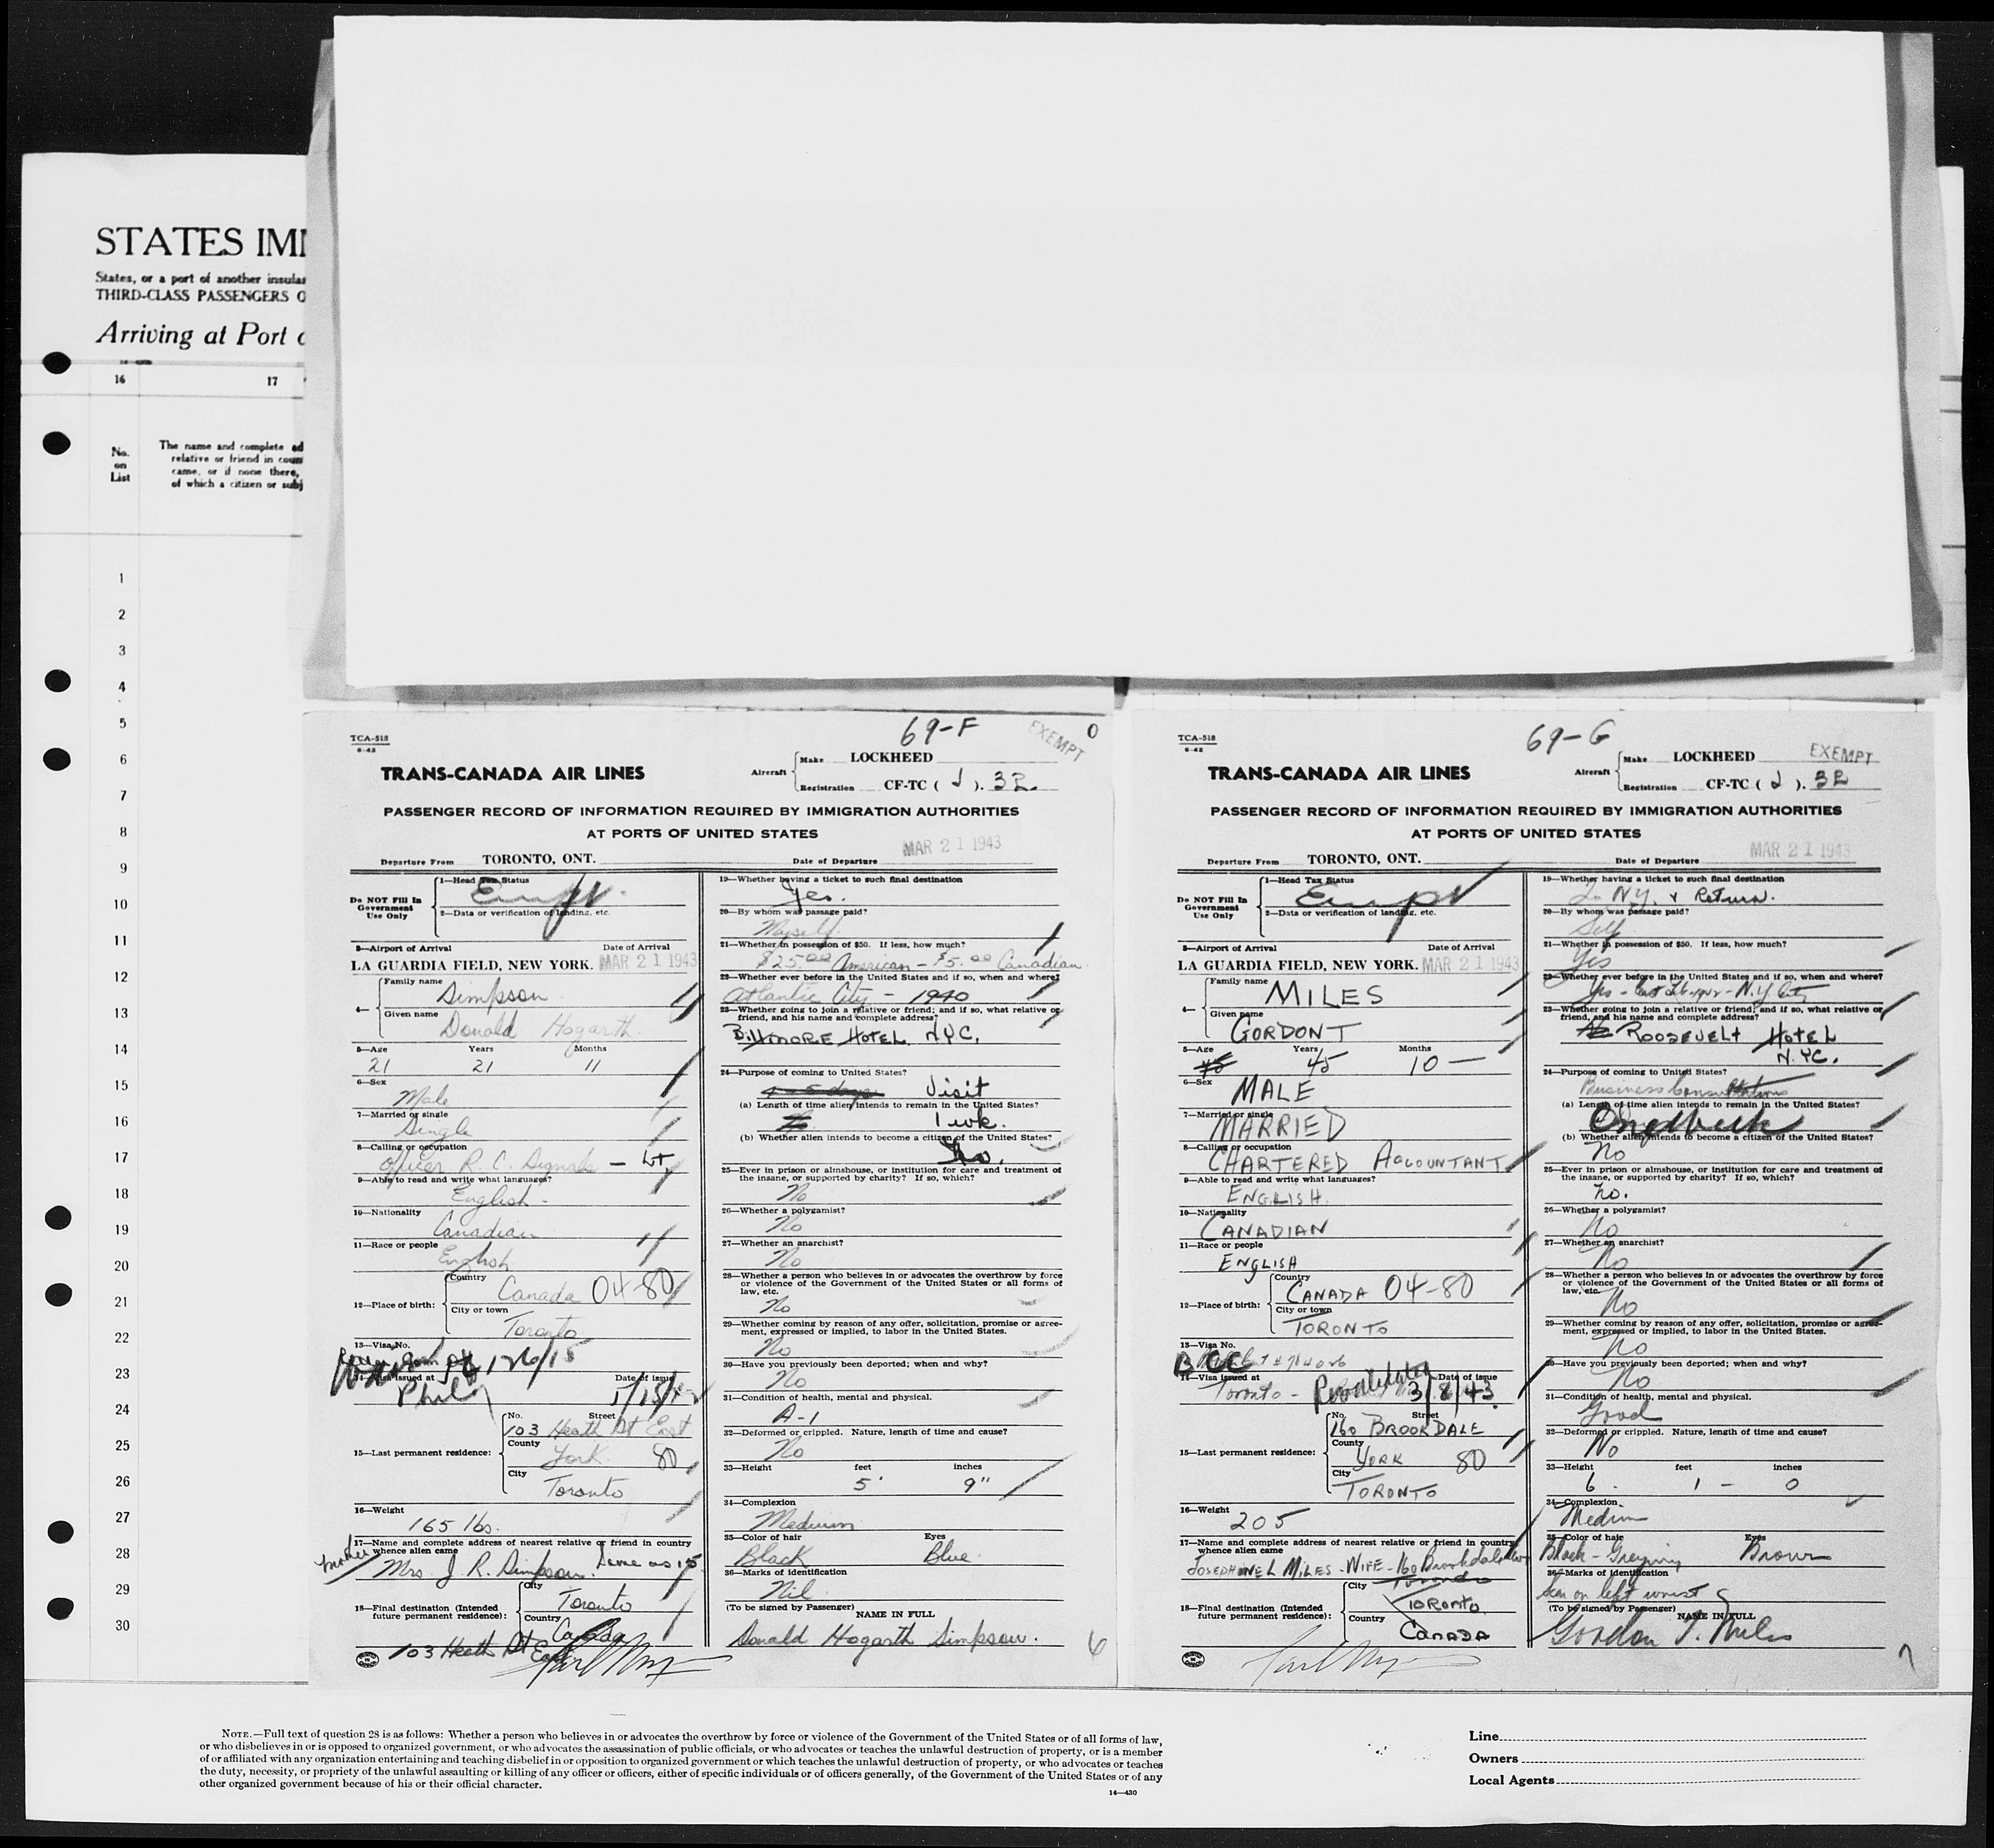 STATES IMM
States, or a port of another insular
THIRD-CLASS PASSENGERS O
Arriving at Port o
16
17
No.
on
List
The name and complete ad
relative or friend in coun
came, or if none there,
of which a citizen or subj
1
2
3
4
5
6
7
8
9
10
11
12
13
14
15
16
17
18
19
20
21
22
23
24
25
26
27
28
29
30
69-F
EXEMPT
0
TCA-518
6-42
TRANS-CANADA AIR LINES
Aircraft
Make LOCKHEED
Registration CF-TC ( J ). 32.
PASSENGER RECORD OF INFORMATION REQUIRED BY IMMIGRATION AUTHORITIES
AT PORTS OF UNITED STATES
Departure From TORONTO, ONT.
Date of Departure MAR 21 1943
Do NOT Fill In
Government
Use Only
1—Head Tax Status
2—Data or verification of landing, etc.
3—Airport of Arrival Date of Arrival
LA GUARDIA FIELD, NEW YORK. MAR 21 1943
4—
Family name
Simpson
Given name
Donald Hogarth
5—Age Years Months
21 21 11
6—Sex
Male
7—Married or single
Single
8—Calling or occupation
Officer R. C. Signals — Lt.
9—Able to read and write what languages?
English -
10—Nationality
Canadian
11—Race or people
English
12—Place of birth:
Country
Canada 04-80
City or town
Toronto
13—Visa No.
14—Visa issued at Date of issue
15—Last permanent residence:
No. Street
103 Heath St East
County
York 80
City
Toronto
16—Weight
165 lbs.
17—Name and complete address of nearest relative or friend in country
whence alien came
mother
Mrs. J. R. Simpson. Same as 15
18—Final destination (Intended
future permanent residence):
City
Toronto
Country
Canada
103 Heath St East
19—Whether having a ticket to such final destination
Yes.
20—By whom was passage paid?
Myself.
21—Whether in possession of $50. If less, how much?
$25.00 American - $5.00 Canadian.
22—Whether ever before in the United States and if so, when and where?
Atlantic City - 1940
23—Whether going to join a relative or friend; and if so, what relative or
friend, and his name and complete address?
BILTMORE HOTEL N.Y.C.
24—Purpose of coming to United States?
Visit
(a) Length of time alien intends to remain in the United States?
1 wk.
(b) Whether alien intends to become a citizen of the United States?
No.
25—Ever in prison or almshouse, or institution for care and treatment of
the insane, or supported by charity? If so, which?
No
26—Whether a polygamist?
No
27—Whether an anarchist?
No
28—Whether a person who believes in or advocates the overthrow by force
or violence of the Government of the United States or all forms of
law, etc.
No
29—Whether coming by reason of any offer, solicitation, promise or agree-
ment, expressed or implied, to labor in the United States.
No
30—Have you previously been deported; when and why?
No
31—Condition of health, mental and physical.
A-1
32—Deformed or crippled. Nature, length of time and cause?
No
33—Height feet inches
5' 9"
34—Complexion
Medium
35—Color of hair Eyes
Black Blue
36—Marks of identification
Nil
(To be signed by Passenger)
NAME IN FULL
Donald Hogarth Simpson.
6
69-G
EXEMPT
TCA-518
6-42
TRANS-CANADA AIR LINES
Aircraft
Make LOCKHEED
Registration CF-TC ( J ). 32
PASSENGER RECORD OF INFORMATION REQUIRED BY IMMIGRATION AUTHORITIES
AT PORTS OF UNITED STATES
Departure From TORONTO, ONT.
Date of Departure MAR 21 1943
Do NOT Fill In
Government
Use Only
1—Head Tax Status
2—Data or verification of landing, etc.
3—Airport of Arrival Date of Arrival
LA GUARDIA FIELD, NEW YORK. MAR 21 1943
4—
Family name
MILES
Given name
GORDON T
5—Age Years Months
45 10 —
6—Sex
MALE
7—Married or single
MARRIED
8—Calling or occupation
CHARTERED ACCOUNTANT
9—Able to read and write what languages?
ENGLISH.
10—Nationality
CANADIAN
11—Race or people
ENGLISH
12—Place of birth:
Country
CANADA 04-80
City or town
TORONTO
13—Visa No.
BCC
14—Visa issued at Date of issue
Toronto - 3/8/43
15—Last permanent residence:
No. Street
160 BROOKDALE
County
YORK 80
City
TORONTO
16—Weight
205
17—Name and complete address of nearest relative or friend in country
whence alien came
JOSEPHINE L MILES - WIFE - 160 Brookdale
Toronto
18—Final destination (Intended
future permanent residence):
City
TORONTO.
Country
CANADA
19—Whether having a ticket to such final destination
To N.Y. & Return.
20—By whom was passage paid?
Self
21—Whether in possession of $50. If less, how much?
Yes
22—Whether ever before in the United States and if so, when and where?
Yes - last Feb-1942 - N.Y. City
23—Whether going to join a relative or friend; and if so, what relative or
friend, and his name and complete address?
No ROOSEVELT HOTEL
N.YC.
24—Purpose of coming to United States?
Business Consultations
(a) Length of time alien intends to remain in the United States?
One week
(b) Whether alien intends to become a citizen of the United States?
No
25—Ever in prison or almshouse, or institution for care and treatment of
the insane, or supported by charity? If so, which?
no.
26—Whether a polygamist?
No
27—Whether an anarchist?
No
28—Whether a person who believes in or advocates the overthrow by force
or violence of the Government of the United States or all forms of
law, etc.
No
29—Whether coming by reason of any offer, solicitation, promise or agree-
ment, expressed or implied, to labor in the United States.
No
30—Have you previously been deported; when and why?
No
31—Condition of health, mental and physical.
Good
32—Deformed or crippled. Nature, length of time and cause?
No
33—Height feet inches
6 1 — 0
34—Complexion
Medium
35—Color of hair Eyes
Black - Greying Brown
36—Marks of identification
Scar on left wrist
(To be signed by Passenger)
NAME IN FULL
Gordon T. Miles
7
NOTE.—Full text of question 28 is as follows: Whether a person who believes in or advocates the overthrow by force or violence of the Government of the United States or of all forms of law,
or who disbelieves in or is opposed to organized government, or who advocates the assassination of public officials, or who advocates or teaches the unlawful destruction of property, or is a member
of or affiliated with any organization entertaining and teaching disbelief in or opposition to organized government or which teaches the unlawful destruction of property, or who advocates or teaches
the duty, necessity, or propriety of the unlawful assaulting or killing of any officer or officers, either of specific individuals or of officers generally, of the Government of the United States or of any
other organized government because of his or their official character.
14—430
Line
Owners
Local Agents